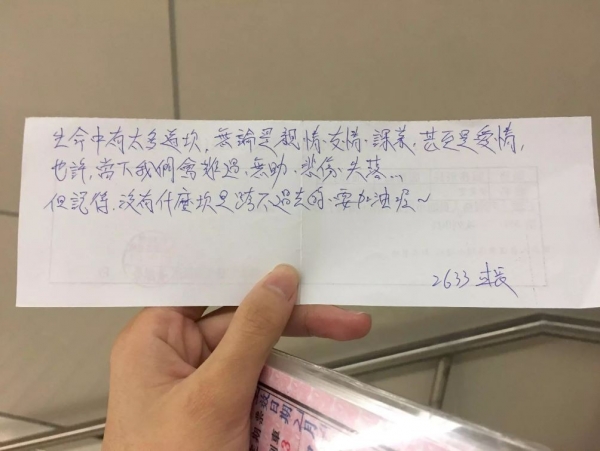 生命中有太多道坎,無論是親情、友情、課業、甚至是愛情,
也許,當下我們會難過、無助、悲傷、失落...
但記得,沒有什麼坎是跨不過去的,要加油喔~
2633 車長